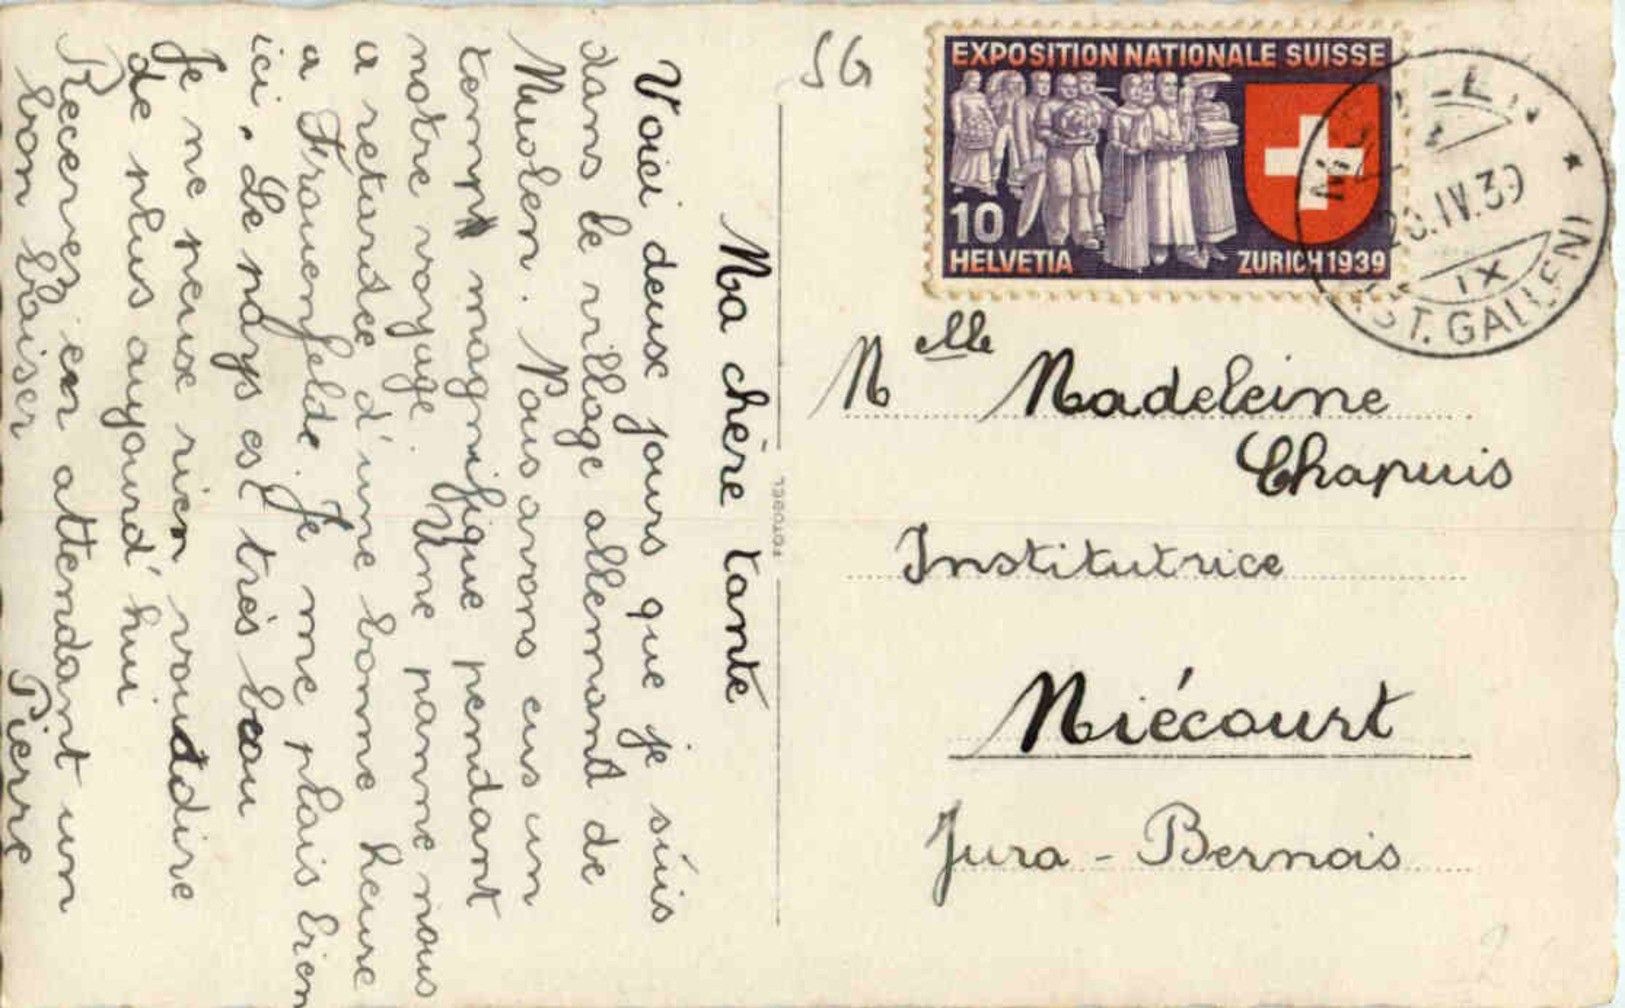 Ma chère tante
Voici deux jours que je suis
dans le village allemand de
Muolen. Nous avons eus un
temps magnifique pendant
notre voyage. Une panne nous
a retardée d'une bonne heure
a Frauenfelde. Je me plais bien
ici. Le pays est très beau
Je ne peux rien vous dire
de plus aujourd'hui
Recevez en attendant un
bon baiser
Pierre
SG
EXPOSITION NATIONALE SUISSE
10
HELVETIA ZURICH 1939
IV.39
IX
(ST. GALLEN)
Melle Madeleine
Chapuis
Institutrice
Miécourt
Jura - Bernois